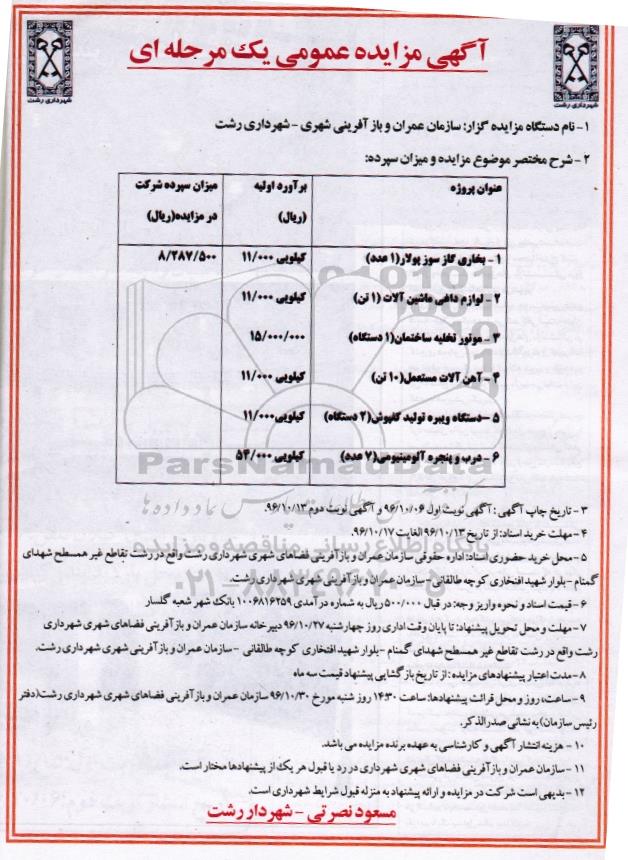 آگهی مزایده عمومی یک مرحله ای
شهرداری رشت
شهرداری رشت
۱- نام دستگاه مزایده گزار: سازمان عمران و بازآفرینی شهری - شهرداری رشت
۲- شرح مختصر موضوع مزایده و میزان سپرده:
عنوان پروژه برآورد اولیه (ریال) میزان سپرده شرکت در مزایده(ریال)
۱- بخاری گاز سوز پولار(۱ عدد) کیلویی ۱۱/۰۰۰ ۸/۲۸۷/۵۰۰
۲- لوازم داغی ماشین آلات (۱ تن) کیلویی ۱۱/۰۰۰
۳- موتور تخلیه ساختمان(۱ دستگاه) ۱۵/۰۰۰/۰۰۰
۴- آهن آلات مستعمل(۱۰ تن) کیلویی ۱۱/۰۰۰
۵- دستگاه ویبره تولید کفپوش(۲ دستگاه) کیلویی۱۱/۰۰۰
۶- درب و پنجره آلومینیومی(۷ عدد) کیلویی ۵۴/۰۰۰
ParsNamadData
پایگاه اطلاع رسانی مناقصه و مزایده
۰۲۱-۸۸۳۴۹۶۷۰-۵
۳- تاریخ چاپ آگهی: آگهی نوبت اول ۹۶/۱۰/۰۶ و آگهی نوبت دوم ۹۶/۱۰/۱۳.
۴- مهلت خرید اسناد: از تاریخ ۹۶/۱۰/۱۳ لغایت ۹۶/۱۰/۱۷.
۵- محل خرید حضوری اسناد: اداره حقوقی سازمان عمران و بازآفرینی فضاهای شهری شهرداری رشت واقع در رشت تقاطع غیر همسطح شهدای
گمنام -بلوار شهید افتخاری کوچه طالقانی- سازمان عمران و بازآفرینی شهری شهرداری رشت.
۶- قیمت اسناد و نحوه واریز وجه: در قبال ۵۰۰/۰۰۰ ریال به شماره درآمدی ۱۰۰۶۸۱۶۲۵۹ بانک شهر شعبه گلسار
۷- مهلت و محل تحویل پیشنهاد: تا پایان وقت اداری روز چهارشنبه ۹۶/۱۰/۲۷ دبیرخانه سازمان عمران و بازآفرینی فضاهای شهری شهرداری
رشت واقع در رشت تقاطع غیر همسطح شهدای گمنام -بلوار شهید افتخاری کوچه طالقانی - سازمان عمران و بازآفرینی شهری شهرداری رشت.
۸- مدت اعتبار پیشنهادهای مزایده: از تاریخ بازگشایی پیشنهاد قیمت سه ماه
۹- ساعت، روز و محل قرائت پیشنهادها: ساعت ۱۴:۳۰ روز شنبه مورخ ۹۶/۱۰/۳۰ سازمان عمران و بازآفرینی فضاهای شهری شهرداری رشت(دفتر
رئیس سازمان) به نشانی صدرالذکر.
۱۰- هزینه انتشار آگهی و کارشناسی به عهده برنده مزایده می باشد.
۱۱- سازمان عمران و بازآفرینی فضاهای شهری شهرداری در رد یا قبول هر یک از پیشنهادها مختار است.
۱۲- بدیهی است شرکت در مزایده و ارائه پیشنهاد به منزله قبول شرایط شهرداری است.
مسعود نصرتی - شهردار رشت